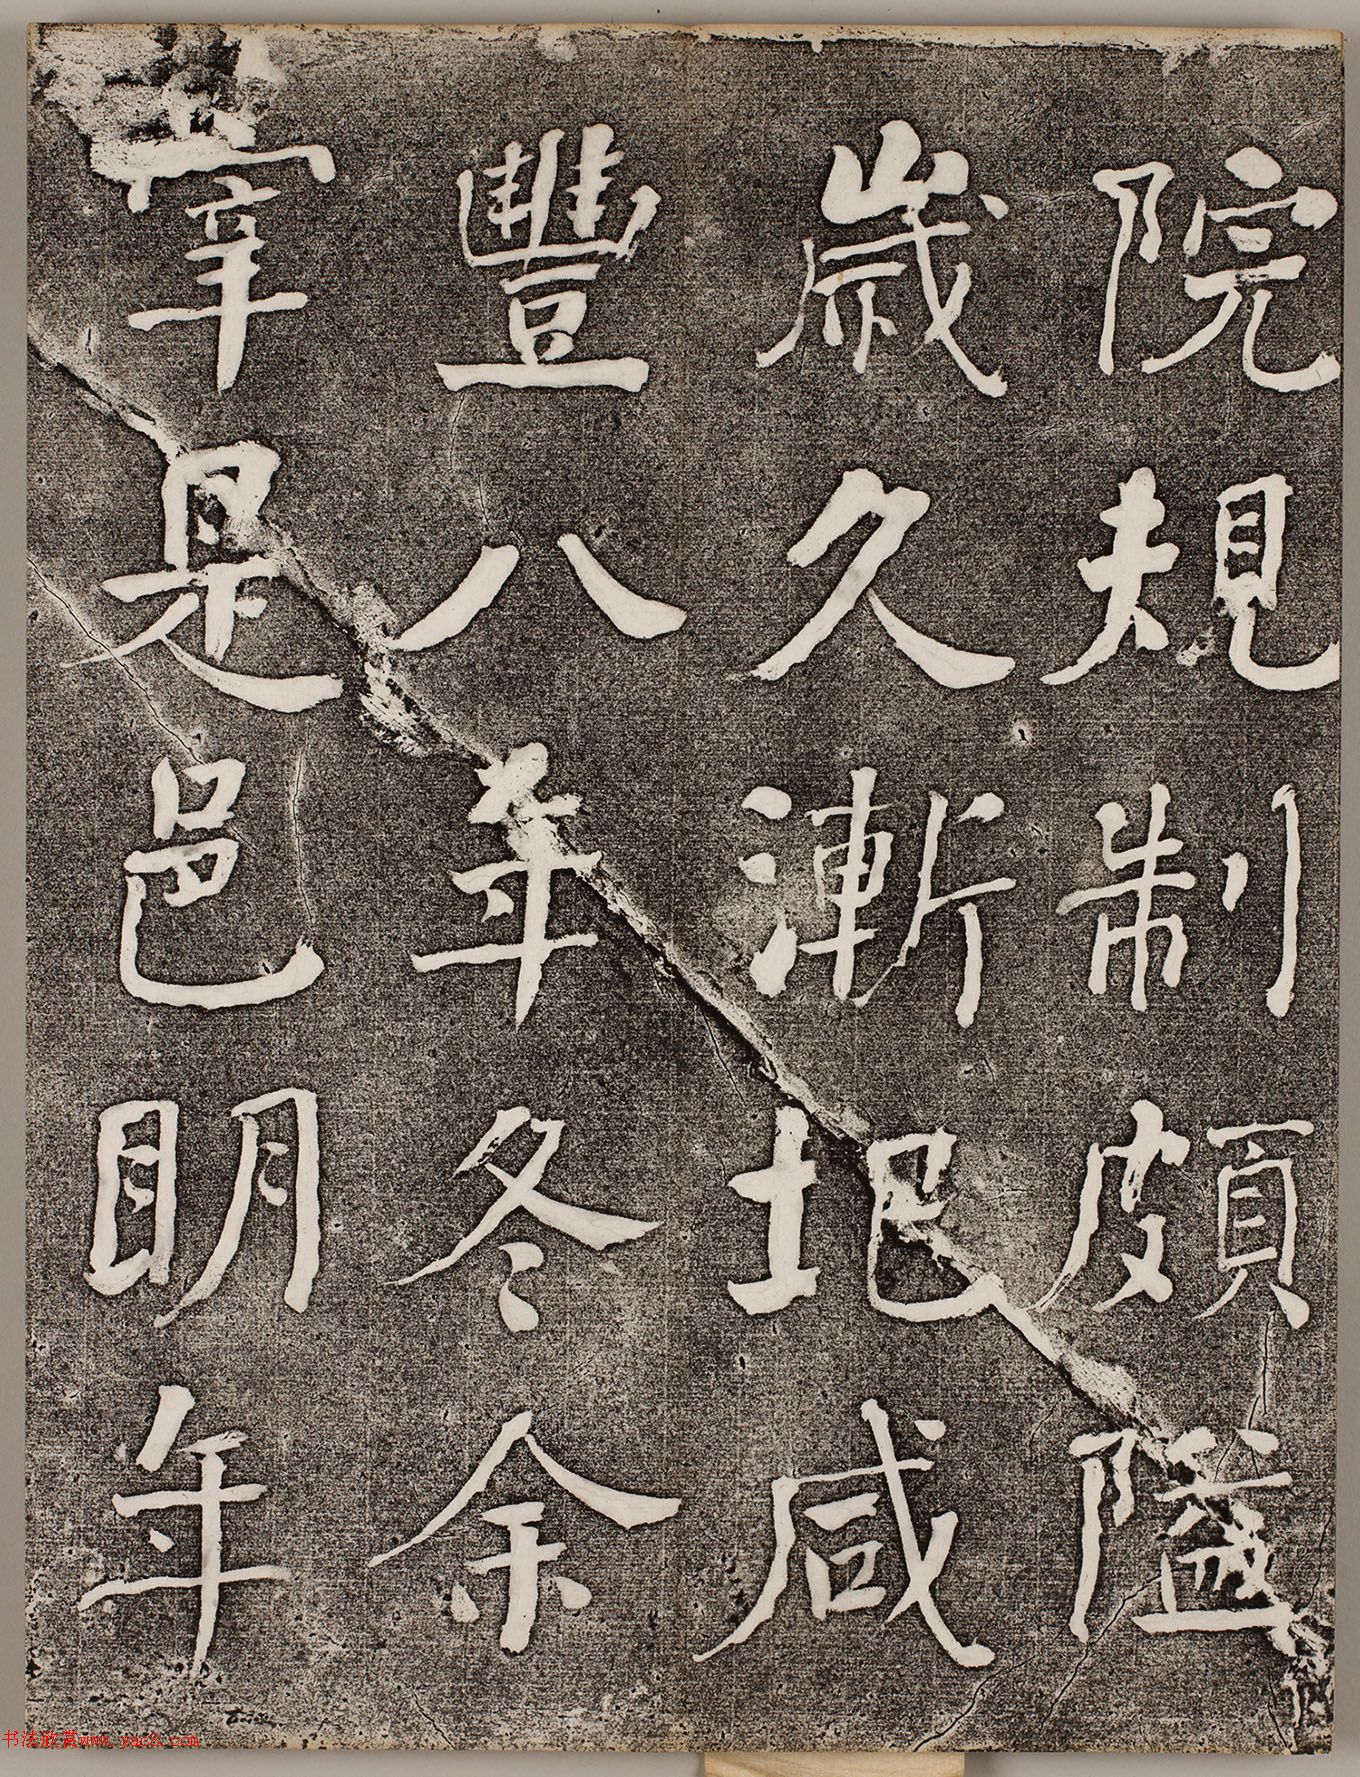 院規制頗隘
歲久漸圮咸
豐八年冬余
宰是邑明年
书法欣赏www.yac8.com